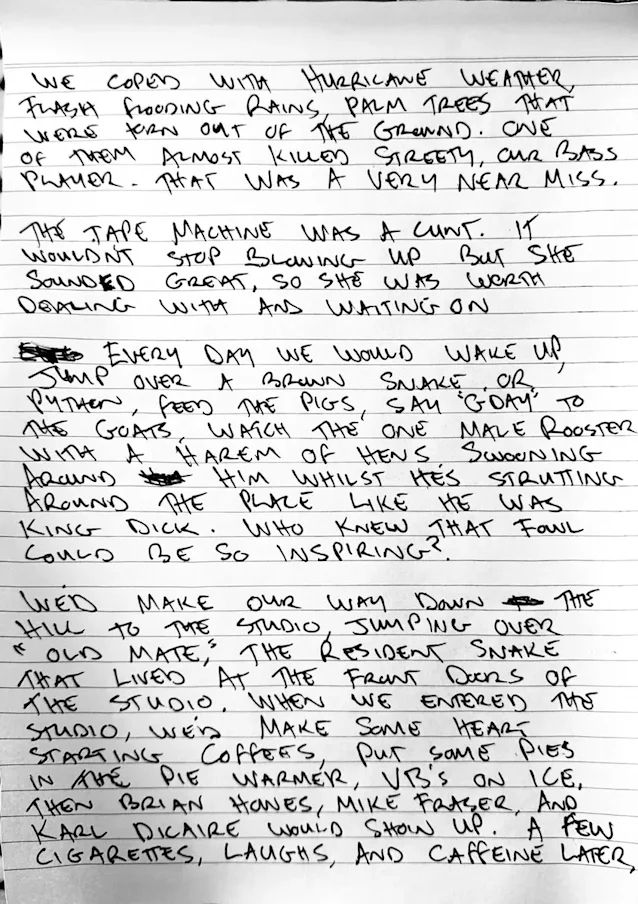 WE COPED WITH HURRICANE WEATHER,
FLASH FLOODING RAINS, PALM TREES THAT
WERE TORN OUT OF THE GROUND. ONE
OF THEM ALMOST KILLED STREETY, OUR BASS
PLAYER. THAT WAS A VERY NEAR MISS.
THE TAPE MACHINE WAS A CUNT. IT
WOULDN'T STOP BLOWING UP BUT SHE
SOUNDED GREAT, SO SHE WAS WORTH
DEALING WITH AND WAITING ON
EVERY DAY WE WOULD WAKE UP,
JUMP OVER A BROWN SNAKE OR
PYTHON, FEED THE PIGS, SAY "G'DAY" TO
THE GOATS, WATCH THE ONE MALE ROOSTER
WITH A HAREM OF HENS SWOONING
AROUND HIM WHILST HE'S STRUTTING
AROUND THE PLACE LIKE HE WAS
KING DICK. WHO KNEW THAT FOWL
COULD BE SO INSPIRING?.
WE'D MAKE OUR WAY DOWN THE
HILL TO THE STUDIO, JUMPING OVER
"OLD MATE," THE RESIDENT SNAKE
THAT LIVED AT THE FRONT DOORS OF
THE STUDIO. WHEN WE ENTERED THE
STUDIO, WE'D MAKE SOME HEART
STARTING COFFEES, PUT SOME PIES
IN THE PIE WARMER, VB'S ON ICE,
THEN BRIAN HOWES, MIKE FRASER, AND
KARL DICAIRE WOULD SHOW UP. A FEW
CIGARETTES, LAUGHS, AND CAFFEINE LATER,